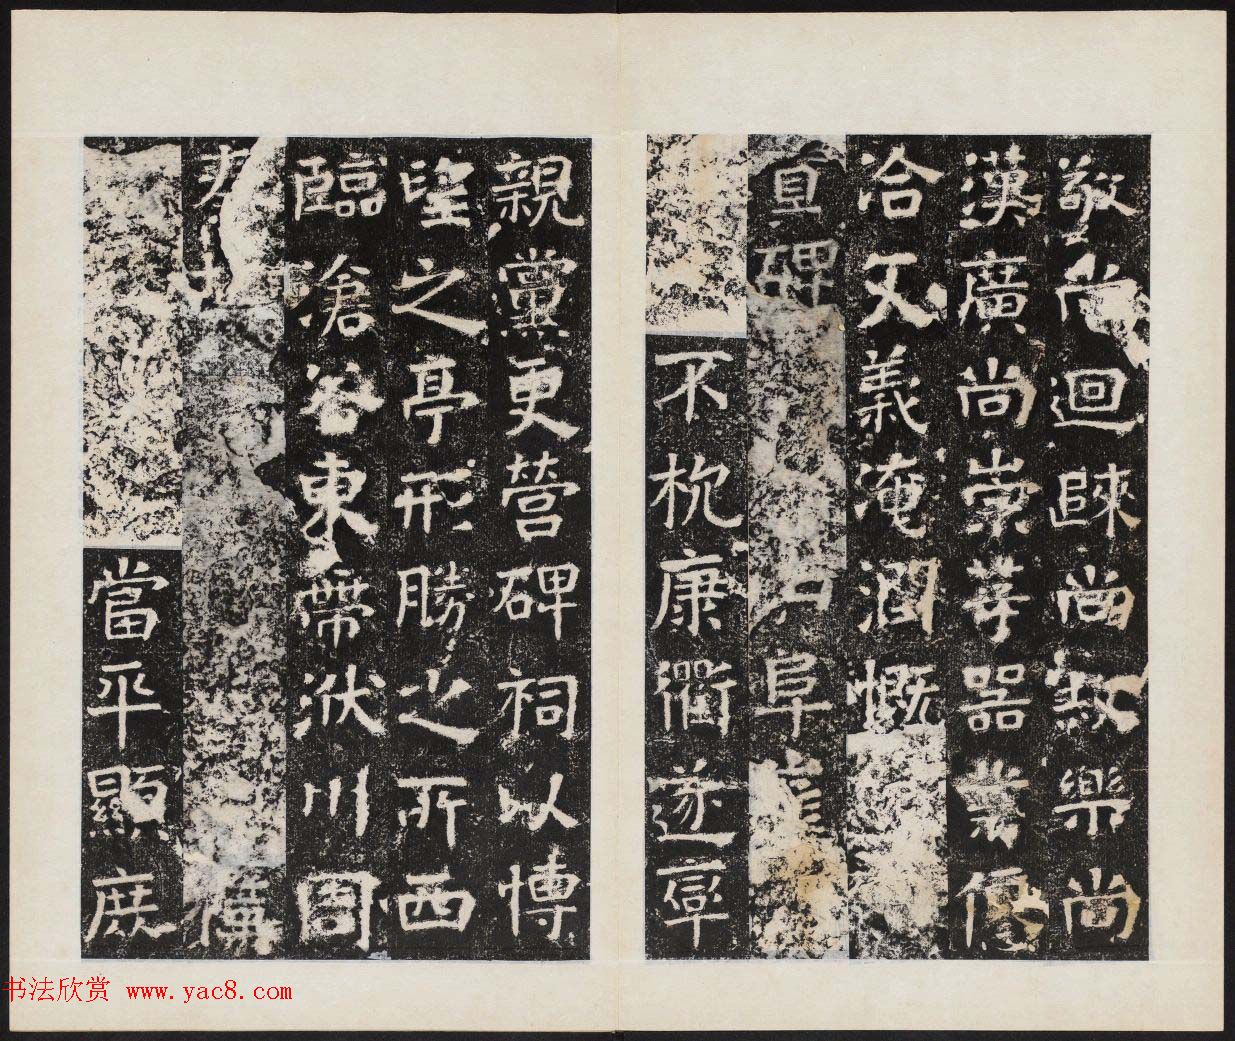 敬尚迴踈尚㪟樂尚
漢廣尚崇芽器業優
洽文義淹潤慨
真碑 阜
不枕康衢遂率
親黨更營碑祠以博
望之亭形勝之所西
臨滄谷東帶洑川周
廣
當平顯庶
书法欣赏 www.yac8.com